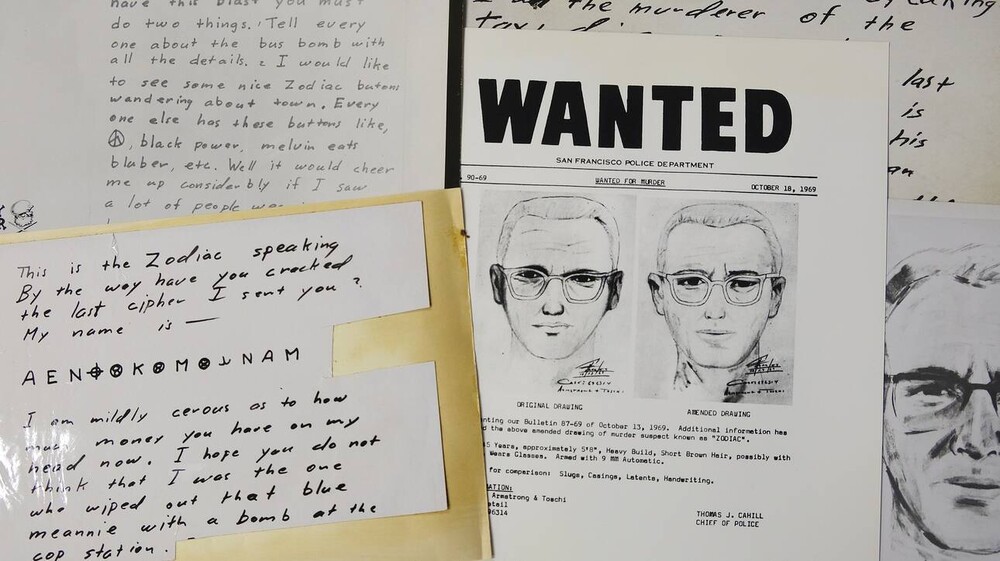 have this blast you must
do two things. Tell every
one about the bus bomb with
all the details. 2 I would like
to see some nice Zodiac butons
wandering about town. Every
one else has these buttons like,
☮, black power, melvin eats
bluber, etc. Well it would cheer
me up considerbly if I saw
a lot of people
This is the Zodiac speaking
By the way have you cracked
the last cipher I sent you?
My name is —
A E N ⌖ ⊗ K ⊗ M ⊗ ⅃ N A M
I am mildly cerous as to how
much money you have on my
head now. I hope you do not
think that I was the one
who wiped out that blue
meannie with a bomb at the
cop station.
the murderer of the
last
is
his
WANTED
SAN FRANCISCO POLICE DEPARTMENT
90-69 WANTED FOR MURDER OCTOBER 18, 1969
ORIGINAL DRAWING AMENDED DRAWING
nting our Bulletin 87-69 of October 13, 1969. Additional information has
d the above amended drawing of murder suspect known as "ZODIAC".
5 Years, approximately 5'8", Heavy Build, Short Brown Hair, possibly with
Wears Glasses. Armed with 9 MM Automatic.
for comparison: Slugs, Casings, Latents, Handwriting.
ATION:
Armstrong & Toschi
etail
96314
THOMAS J. CAHILL
CHIEF OF POLICE